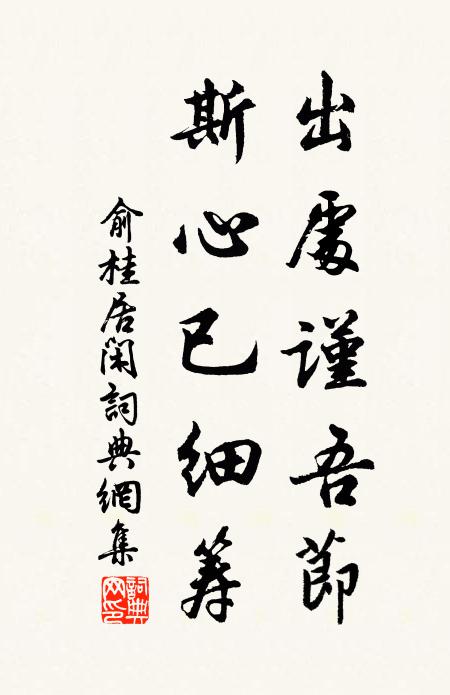 出處謹吾節
斯心已細籌
俞桂居閑詞典網集
詞典網印